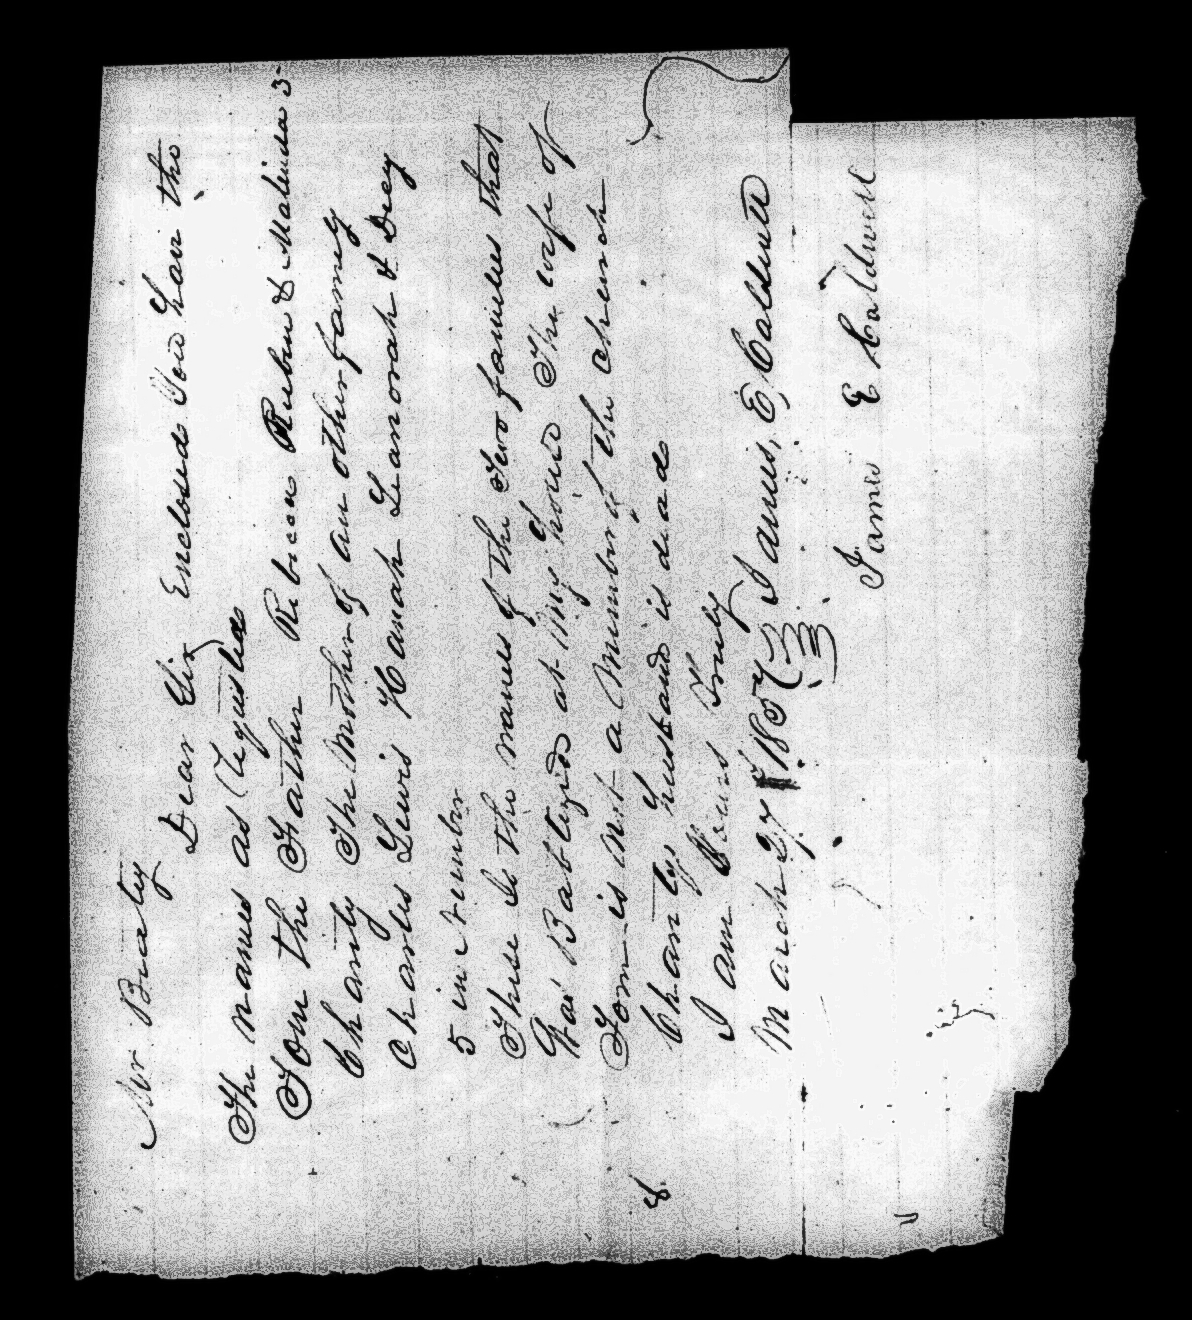 Mr Beaty
Dear Sir Enclosed You have the
The names as Requisted
Tom the Father Rebecca Rubin & Malinda 3
Charity The Mother of an other famey
Charles Lewis Hanah Leanorah & Dicy
5 in Number
These Is the names of the Two families that
was Babtizd at My House The wife of
Tom is Not a Member of the church
Charity Husband is dead
I am Yours Truly
March 27 1857 James, E Caldwell
James E Caldwell